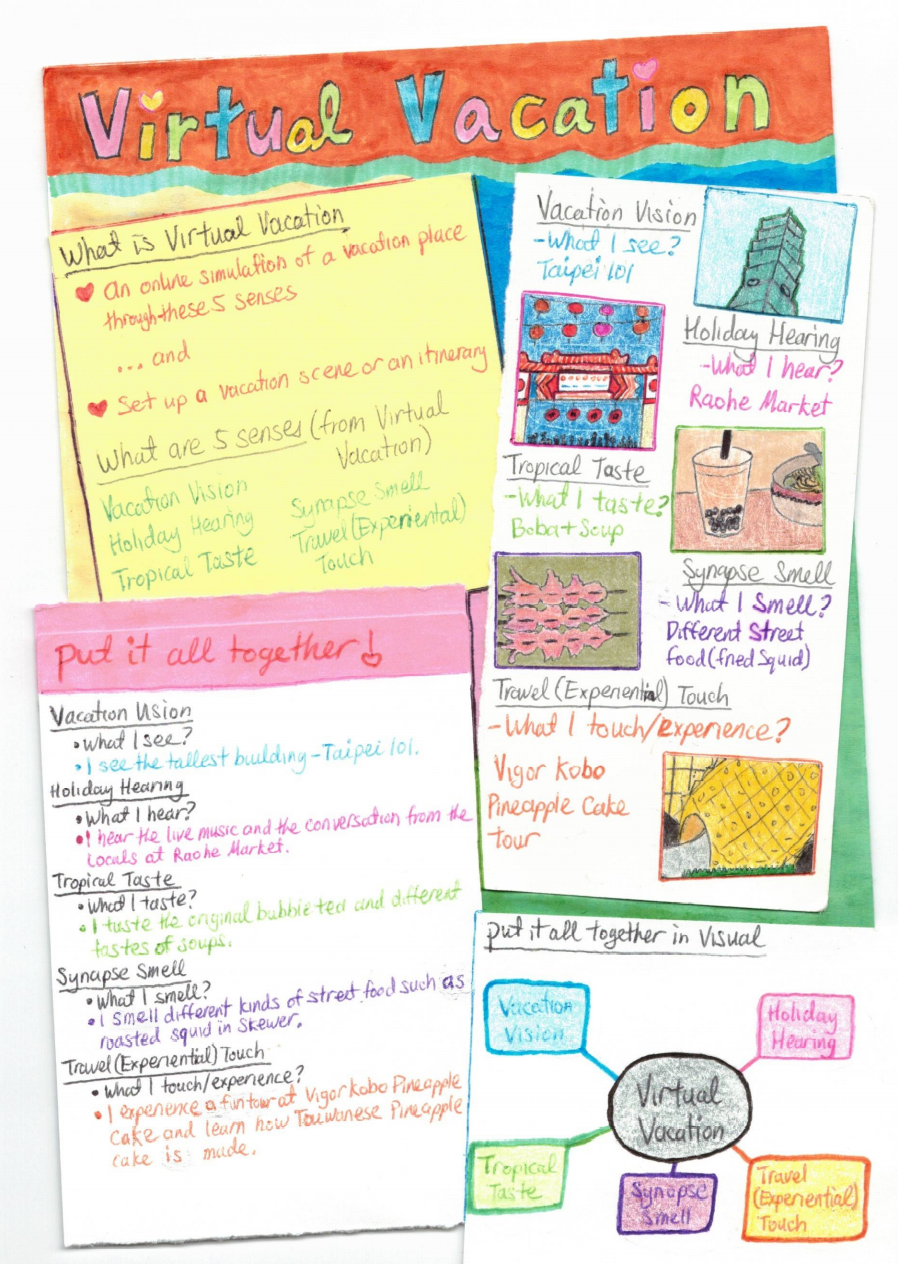 Virtual Vacation
What is Virtual Vacation
An online simulation of a vacation place
through these 5 senses
... and
Set up a vacation scene or an itinerary
What are 5 senses (from Virtual
Vacation)
Vacation Vision
Holiday Hearing
Tropical Taste
Synapse Smell
Travel (Experiential)
Touch
Vacation Vision
-What I see?
Taipei 101
Holiday Hearing
-What I hear?
Raohe Market
Tropical Taste
-What I taste?
Boba + Soup
Synapse Smell
-What I Smell?
Different Street
food (fried Squid)
Travel (Experiential) Touch
-What I touch/experience?
Vigor Kobo
Pineapple Cake
tour
put it all together!
Vacation Vision
• What I see?
• I see the tallest building - Taipei 101.
Holiday Hearing
• What I hear?
• I hear the live music and the conversation from the
locals at Raohe Market.
Tropical Taste
• What I taste?
• I taste the original bubble tea and different
tastes of soups.
Synapse Smell
• What I smell?
• I smell different kinds of street food such as
roasted squid in skewer.
Travel (Experiential) Touch
• What I touch/experience?
• I experience a fun tour at Vigor Kobo Pineapple
Cake and learn how Taiwanese Pineapple
cake is made.
put it all together in Visual
Vacation
Vision
Holiday
Hearing
Virtual
Vacation
Tropical
Taste
Synapse
Smell
Travel
(Experiential)
Touch